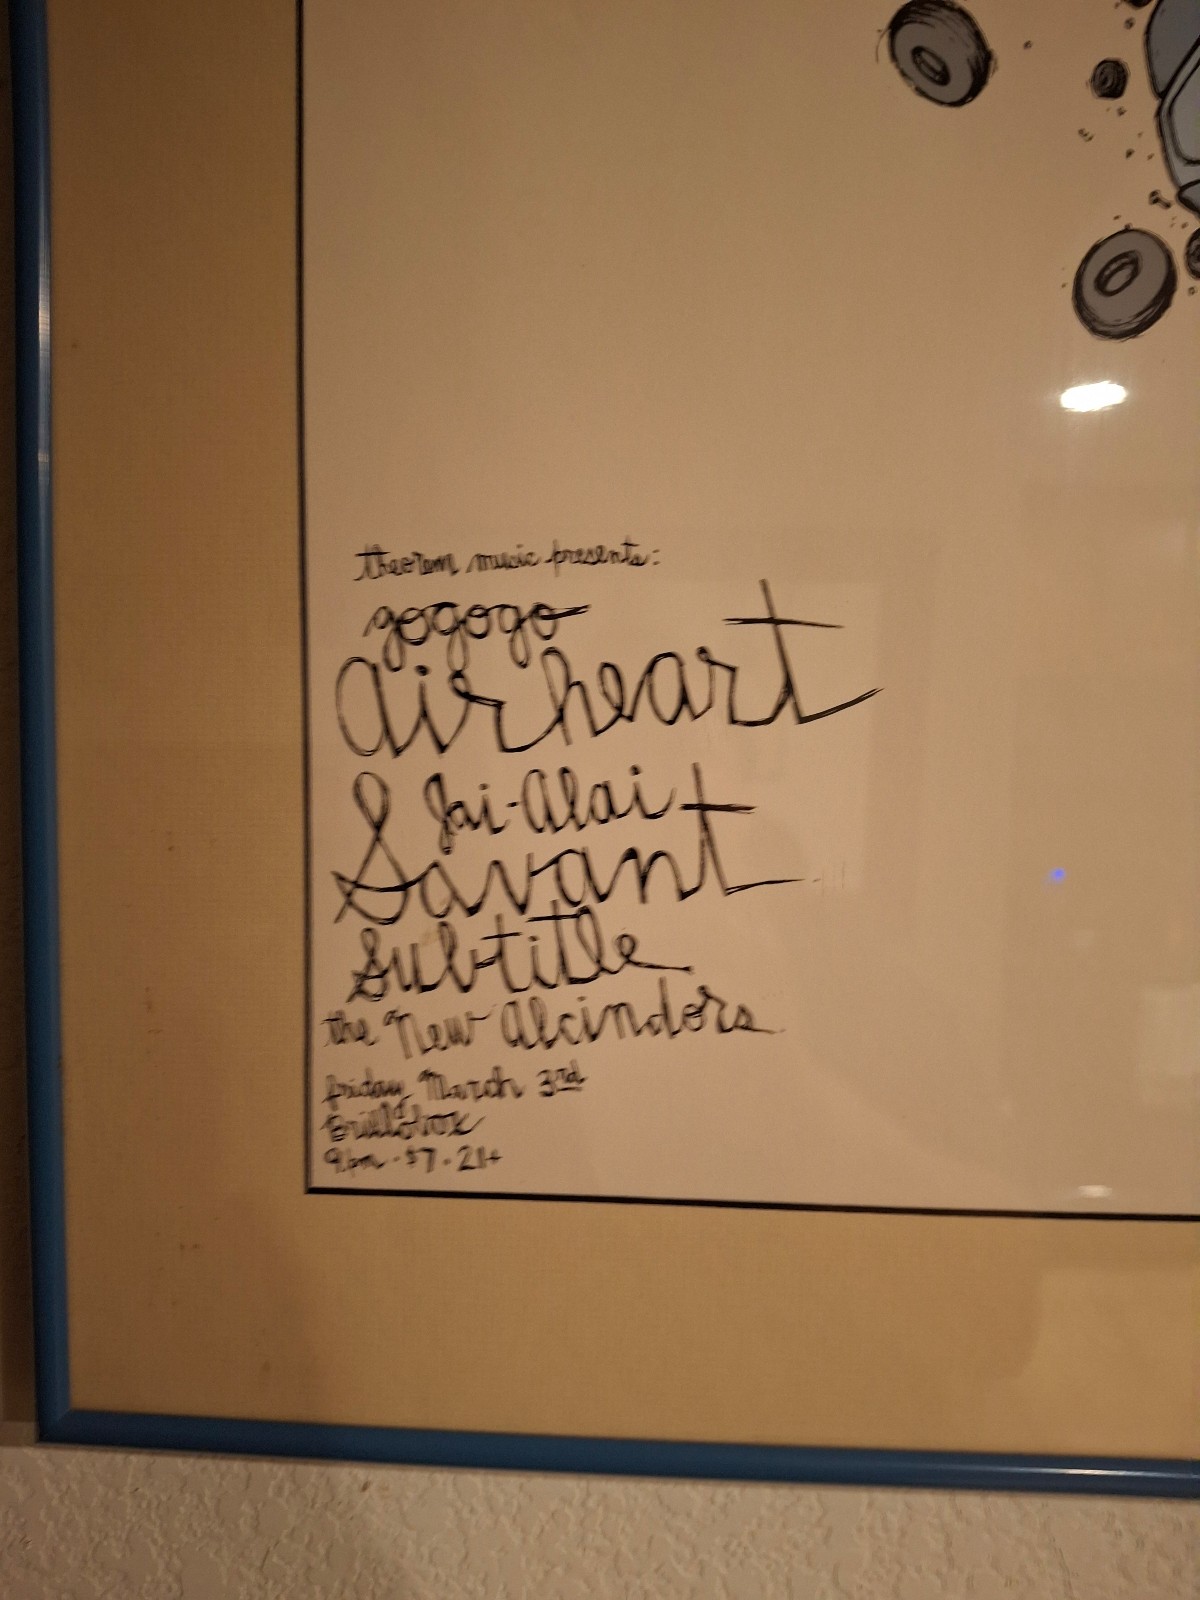 theorem music presents:
gogogo
airheart
Jai-Alai
Savant
Subtitle
the New Alcindors
friday March 3rd
Brillobox
9pm·$7·21+